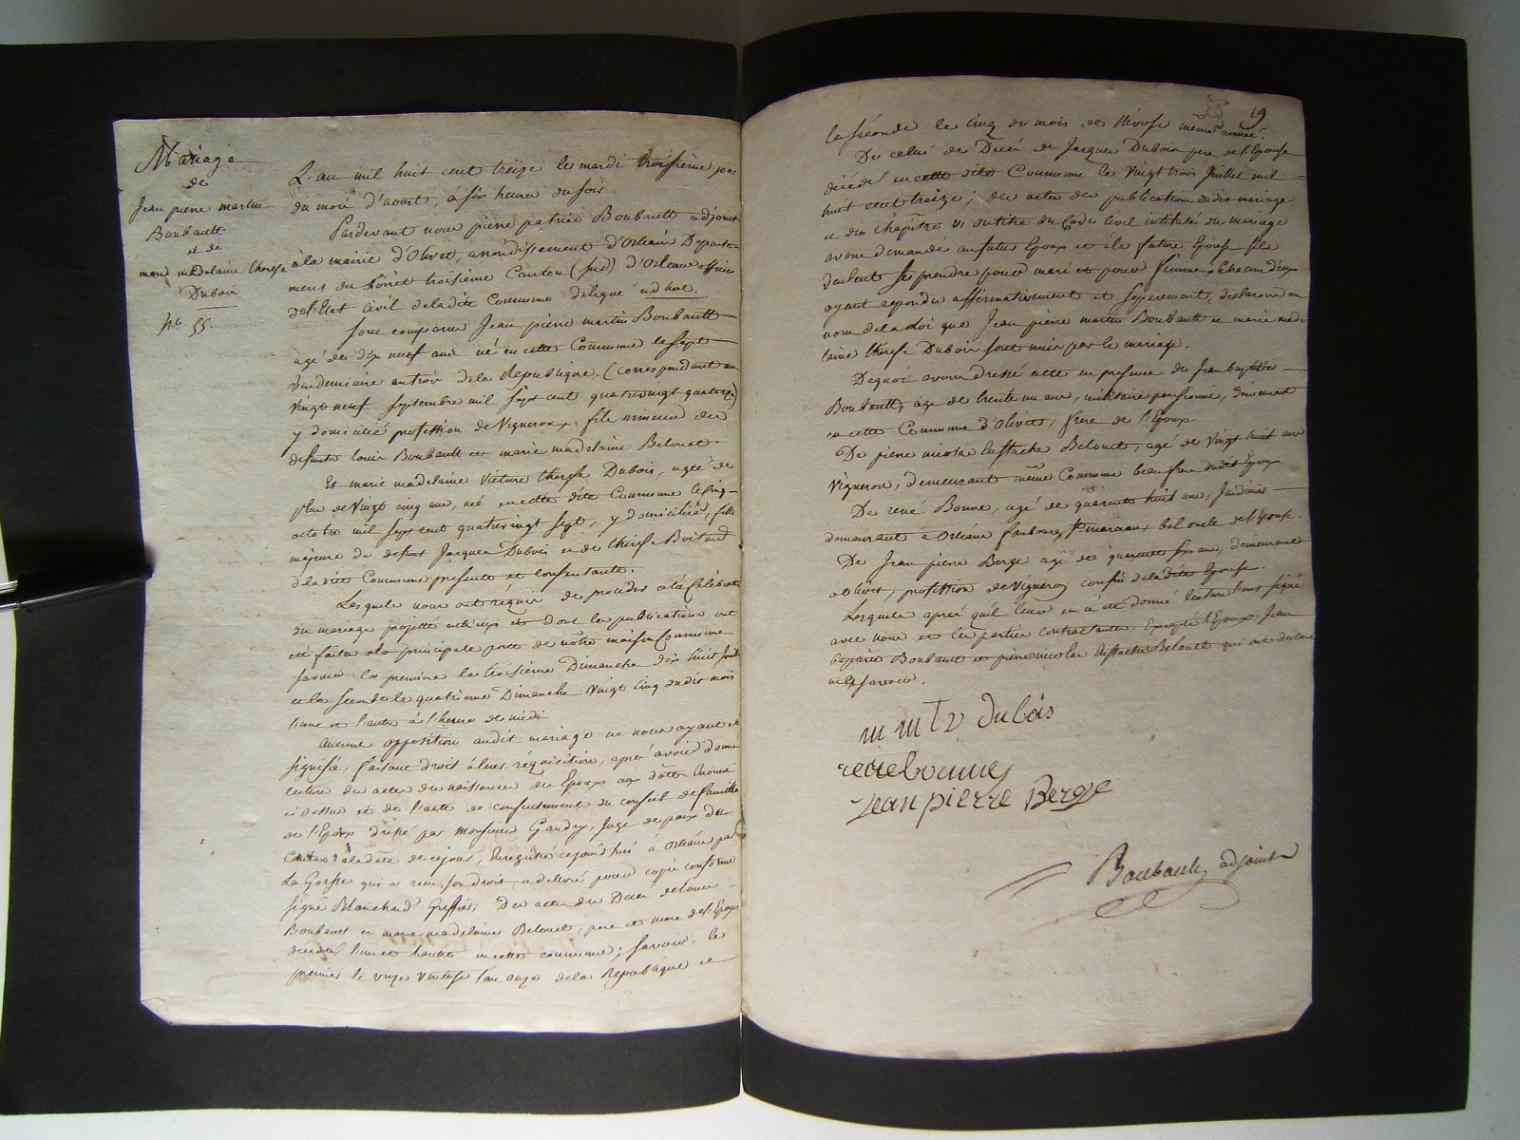 Mariage
de
Jean pierre martin
Boubault
et de
marie madelaine therese
Dubois
No 55.
L'an mil huit cent treize le mardi troisieme jour
du mois d'aout, à six heures du soir
Pardevant nous pierre patrice Boubault adjoint
à la mairie d'Olivet, arrondissement d'Orleans Departe-
ment du Loiret troisieme Canton (sud) d'Orleans officier
de l'Etat Civil de la dite Commune délégué ad hoc.
Sont comparus Jean pierre martin Boubault
agé de dix neuf ans né en cette Commune le sept
Vendemiaire an trois de la République (correspondant au
Vingt neuf septembre mil sept cent quatrevingt quatorze)
y domicilié profession de Vigneron, fils mineur des
defunts Louis Boubault et marie madelaine Belouet.
Et marie madelaine Victoire therese Dubois, agée de
plus de Vingt cinq ans, née en cette dite Commune le cinq
octobre mil sept cent quatrevingt sept, y domiciliée, fille
majeure du defunt Jacques Dubois et de therese Boitard
de la dite Commune presente et consentante.
Lesquels nous ont requis de proceder à la Célébration
du mariage projetté entr'eux et dont les publications ont
été faites à la principale porte de nôtre maison Commune
savoir la premiere le troisieme Dimanche dix huit Juillet
et la seconde le quatrieme Dimanche Vingt cinq dudit mois
l'une et l'autre à l'heure de midi
Aucune opposition audit mariage ne nous ayant été
signifiée, faisant droit à leur réquisition, après avoir donné
lecture des actes de naissances des Epoux aux dattes énoncées
ci dessus et de l'acte de consentement du conseil de famille
de l'Epoux dressé par Monsieur Gaudry, Juge de paix du
Canton à la date de ce jour, Enregistré cejourd'hui à Orleans par
La Gorse qui a reçu son droit, a délivré pour copie conforme
signé Blanchard Greffier, Des actes de Décès de Louis
Boubault et marie madelaine Belouet, pere et mere de l'Epoux
décédés l'un et l'autre en cette commune; savoir: le
premier le onze Ventose l'an onze de la République et
19
la seconde le cinq du mois de Nivose même année.
De celui de Décès de Jacques Dubois pere de l'Epouse
décédé en cette dite Commune le Vingt trois Juillet mil
huit cent treize; des actes de publication dudit mariage
et du chapitre VI du titre du Code Civil intitulé du mariage
avons demandé au futur Epoux et à la future Epouse s'ils
veulent se prendre pour mari et pour femme, chacun d'eux
ayant repondu affirmativement et séparement, declarons au
nom de la Loi que Jean pierre martin Boubault et marie made
laine therese Dubois sont unis par le mariage.
De quoi avons dressé acte en presence de Jean baptiste
Boubault, agé de trente un ans, militaire pensionné, demeurant
en cette Commune d'Olivet, frere de l'Epoux
De pierre nicolas Eustache Belouet, agé de Vingt huit ans
Vigneron, demeurant même Commune beau frere dudit Epoux
De rené Bonne, agé de quarante huit ans, Jardinier
demeurant à Orleans faubourg St marceau, bel oncle de l'Epouse.
De Jean pierre Berge agé de quarante six ans, demeurant
à Olivet, profession de Vigneron cousin de la dite Epouse.
Lesquels après qu'il leur en a été donné lecture l'ont signé
avec nous et les parties contractantes, Excepté l'Epoux, Jean
baptiste Boubault et pierre nicolas Eustache Belouet qui ont declaré
ne le savoir.
m m t v dubois
rene bonnes
Jean pierre Berge
Boubault adjoint